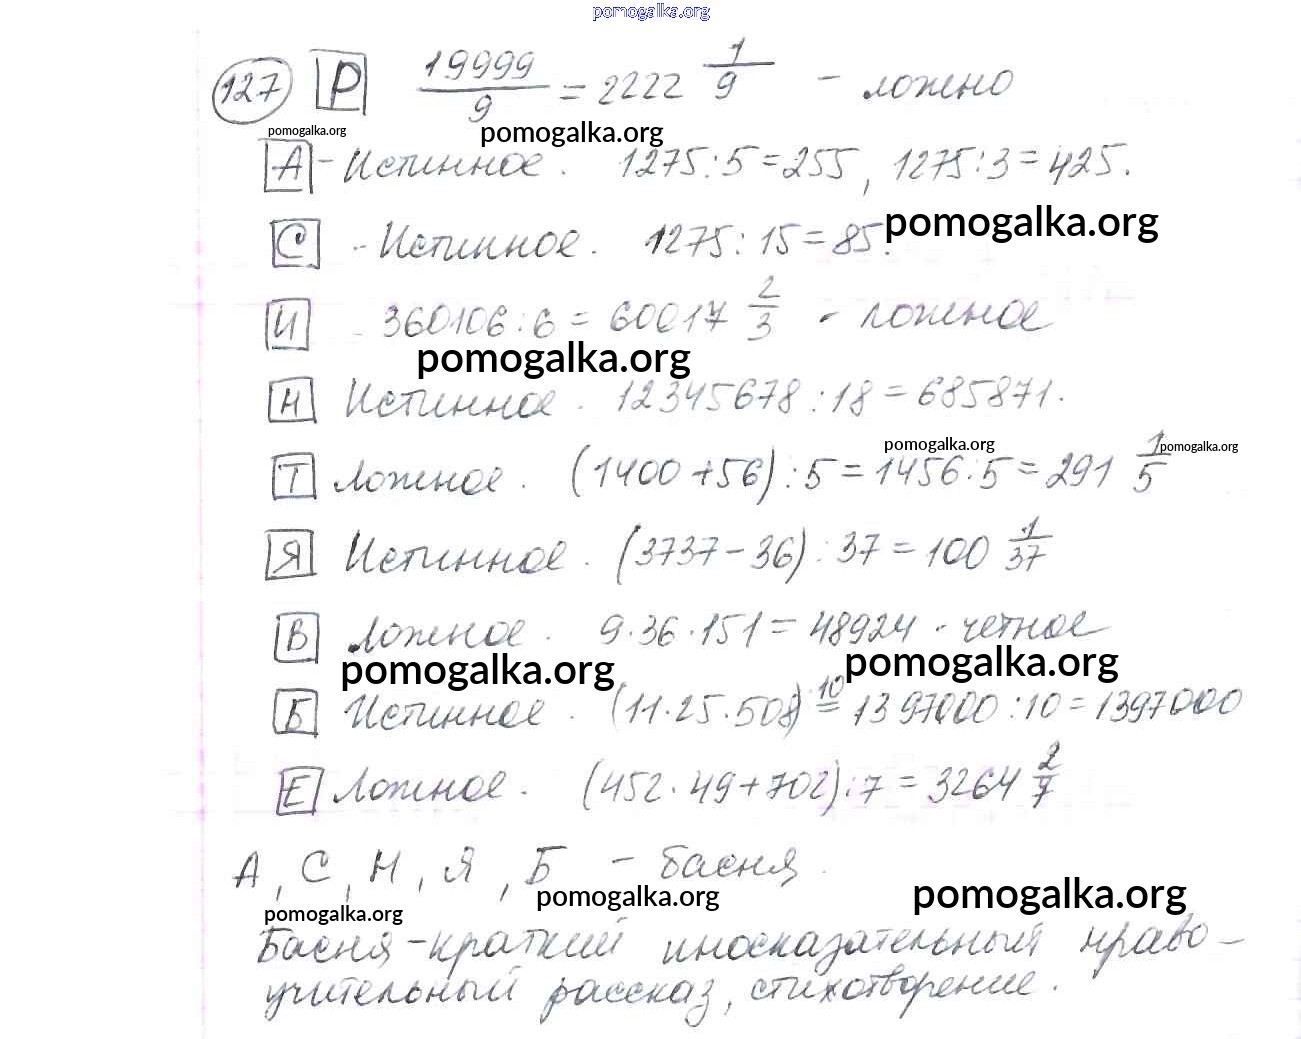 pomogalka.org
127 Р 19999/9 = 2222 1/9 - ложно
pomogalka.org pomogalka.org
А - Истинное. 1275:5=255, 1275:3=425.
С - Истинное. 1275:15=85. pomogalka.org
И 360106:6=60017 2/3 - ложное
pomogalka.org
Н Истинное. 12345678:18=685871.
pomogalka.org pomogalka.org
Т Ложное. (1400+56):5=1456:5=291 1/5
Я Истинное. (3737-36):37=100 1/37
В Ложное. 9·36·151=48924 - четное
pomogalka.org pomogalka.org
Б Истинное. (11·25·508) 10 = 1397000:10=1397000
Е Ложное. (452·49+702):7=3264 2/7
А, С, Н, Я, Б - басня.
pomogalka.org pomogalka.org pomogalka.org
Басня-краткий иносказательный нраво-
учительный рассказ, стихотворение.